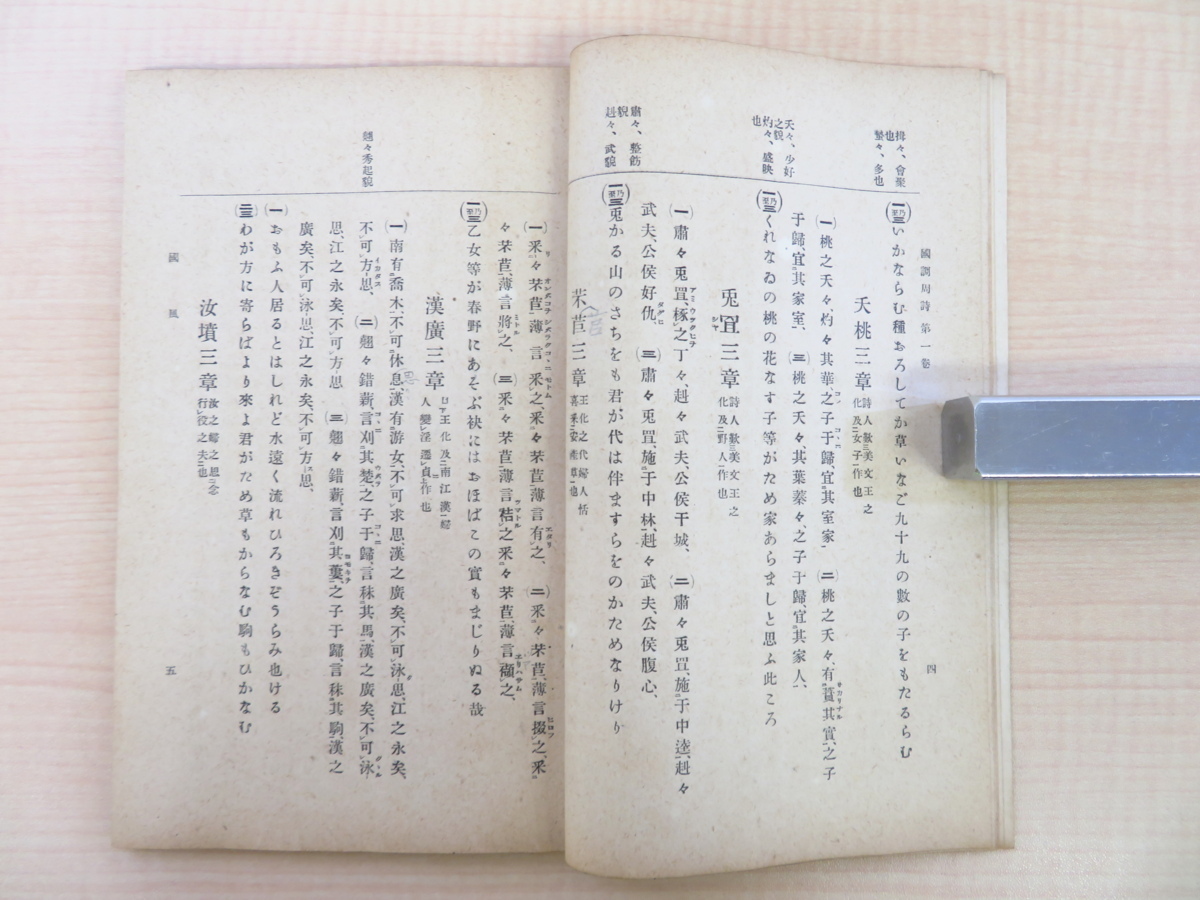 國調周詩 第一卷
四
揖々、會聚
也
蟄々、多也
いかならむ種おろしてか草いなご九十九の數の子をもたるらむ
夭桃三章
詩人歎美文王之
化及女子作也
夭々、少好
之貌
灼々、盛映
也
一 桃之夭々、灼々其華、之子于歸、宜其室家 二 桃之夭々、有蕡其實、之子
于歸、宜其家室、 三 桃之夭々、其葉蓁々、之子于歸、宜其家人、
くれなゐの桃の花なす子等がため家あらましと思ふ此ころ
兎罝三章
詩人歎美文王之
化及野人作也
肅々、整飭
貌
赳々、武貌
一 肅々兎罝、椓之丁々、赳々武夫、公侯干城、 二 肅々兎罝、施于中逵、赳々
武夫、公侯好仇、 三 肅々兎罝、施于中林、赳々武夫、公侯腹心、
兎かる山のさちをも君が代は伴ますらをのかためなりけり
芣苢三章
王化之代婦人恬
一 采々芣苢、薄言采之、采々芣苢、薄言有之、 二 采々芣苢、薄言掇之、采
々芣苢、薄言將之、 三 采々芣苢、薄言袺之、采々芣苢、薄言襭之、
乙女等が春野にあそぶ袂にはおほばこの實もまじりぬる哉
漢廣三章
王化及南江漢婦
人變淫濫貞作也
翹々秀起貌
一 南有喬木、不可休息、漢有游女、不可求思、漢之廣矣、不可泳思、江之永矣、
不可方思、 二 翹々錯薪、言刈其楚、之子于歸、言秣其馬、漢之廣矣、不可泳
思、江之永矣、不可方思 三 翹々錯薪、言刈其蔞、之子于歸、言秣其駒、漢之
廣矣、不可泳思、江之永矣、不可方思、
一 おもふ人居るとはしれど水遠く流れひろきぞうらみ也ける
わが方に寄らばより來よ君がため草もからなむ駒もひかなむ
汝墳三章
汝之婦之思念
行役之夫也
國風
五